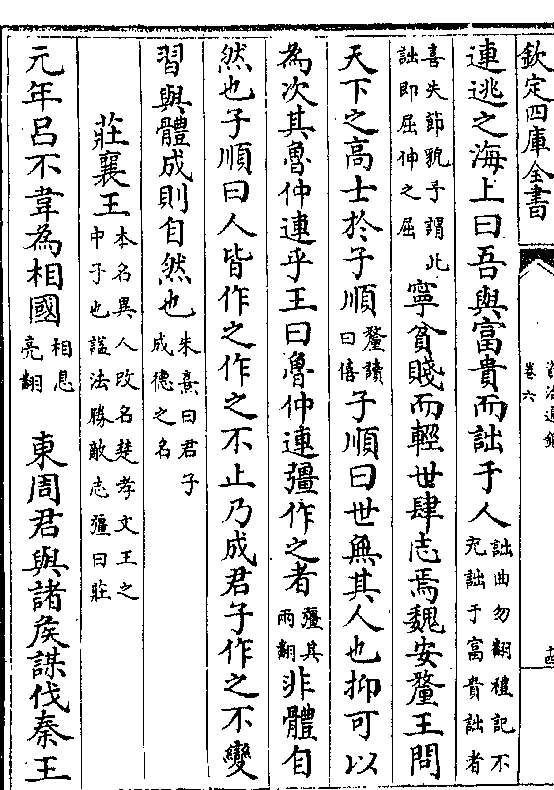 欽定四庫全書
卷六
連逃之海上曰吾與富貴而詘于人詘曲勿翻禮記不充詘于富貴詘者
喜失節貌予謂此詘即屈伸之屈寧貧賤而輕世肆志焉魏安釐王問
天下之高士於子順釐讀曰僖子順曰世無其人也抑可以
為次其魯仲連乎王曰魯仲連彊作之者彊其兩翻非體自
然也子順曰人皆作之作之不止乃成君子作之不變
習與體成則自然也朱熹曰君子成德之名
莊襄王本名異人改名楚孝文王之中子也諡法勝敵志彊曰莊
元年呂不韋為相國相息亮翻東周君與諸侯謀伐秦王